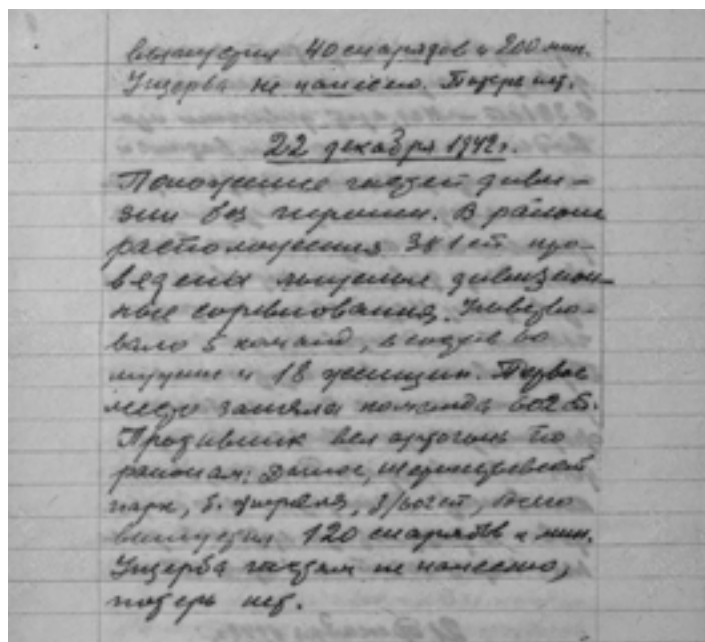 выпустил 40 снарядов и 200 мин.
Ущерба не нанесено. Потерь нет.
22 декабря 1942г.
Положение частей диви-
зии без перемен. В районе
расположения 381 сп про-
ведены лыжные дивизион-
ные соревнования. Участво-
вало 5 команд, в составе 60
мужчин и 18 женщин. Первое
место заняла команда 602 сп.
Противник вел артогонь по
районам: Шереметевский
парк, 602 сп, всего
выпустил 120 снарядов и мин.
Ущерба частям не нанесено,
потерь нет.